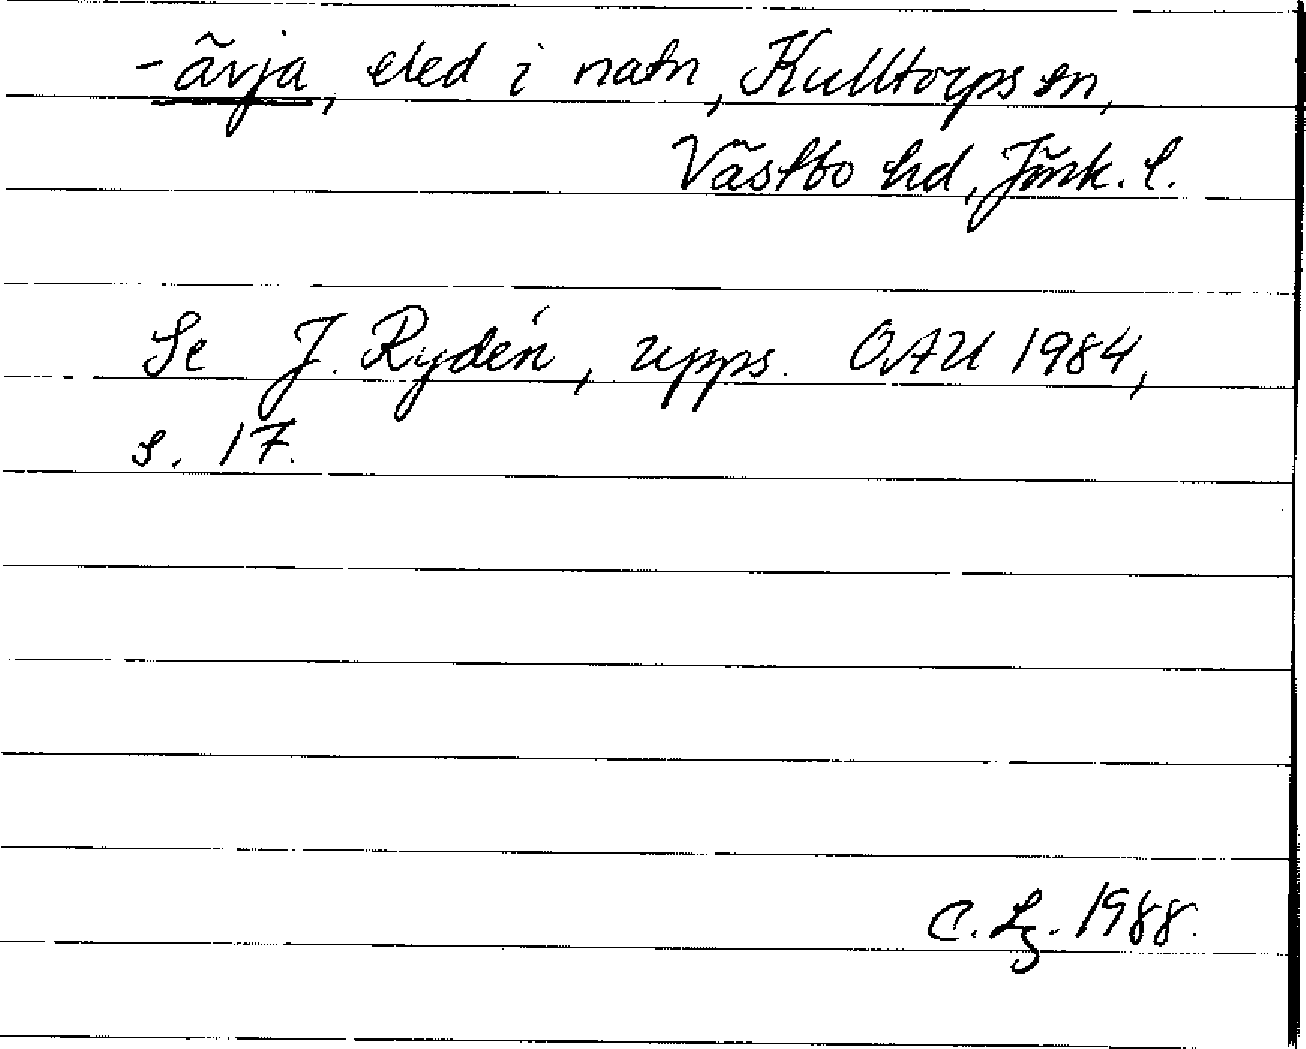 -ävja, eled i natn, Kulltorps sn,
Västbo hd, Jönk. l.
Se J. Rydén, upps. OAU 1984,
s. 17.
C. Lg. 1988.